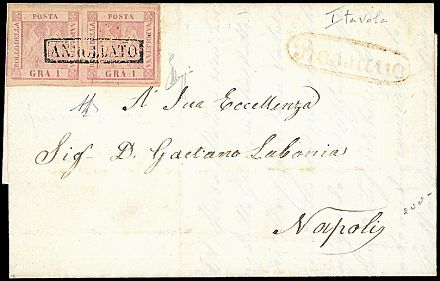 I tavola
POSTA POSTA
BOLLO DELLA NAPOLETANA
ANNULLATO
GRA 1 GRA 1
A Sua Eccellenza
Sig.r D. Gaetano Labonia
Napoli
200-